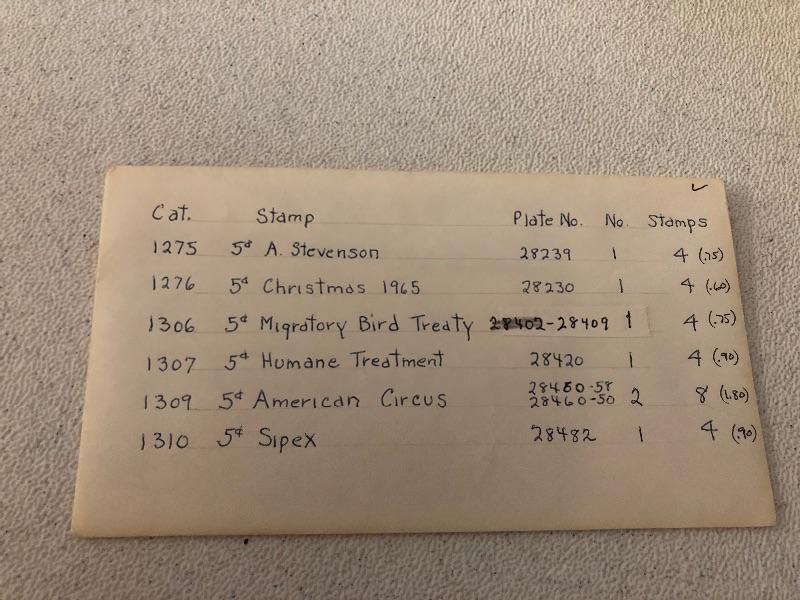 Cat. Stamp Plate No. No. Stamps
1275 5¢ A. Stevenson 28239 1 4 (.75)
1276 5¢ Christmas 1965 28230 1 4 (.60)
1306 5¢ Migratory Bird Treaty 28402-28409 1 4 (.75)
1307 5¢ Humane Treatment 28420 1 4 (.90)
1309 5¢ American Circus 28460-58 28460-50 2 8 (1.80)
1310 5¢ Sipex 28482 1 4 (.90)